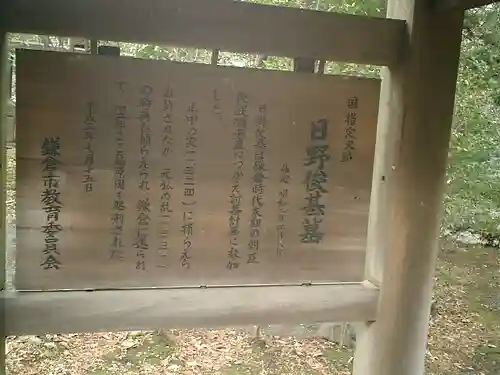 国指定史跡
日野俊基墓
指定 昭和
日野俊基は鎌倉時代末期の朝臣
後醍醐天皇につかえ討幕計画に参加
した。
正中の変(一三二四)に捕えら
れ許されたが、元弘の乱(一三三一)
の時再び捕えられ、鎌倉に送られ
て
葛原岡で処刑された。
平成二年
鎌倉市教育委員会